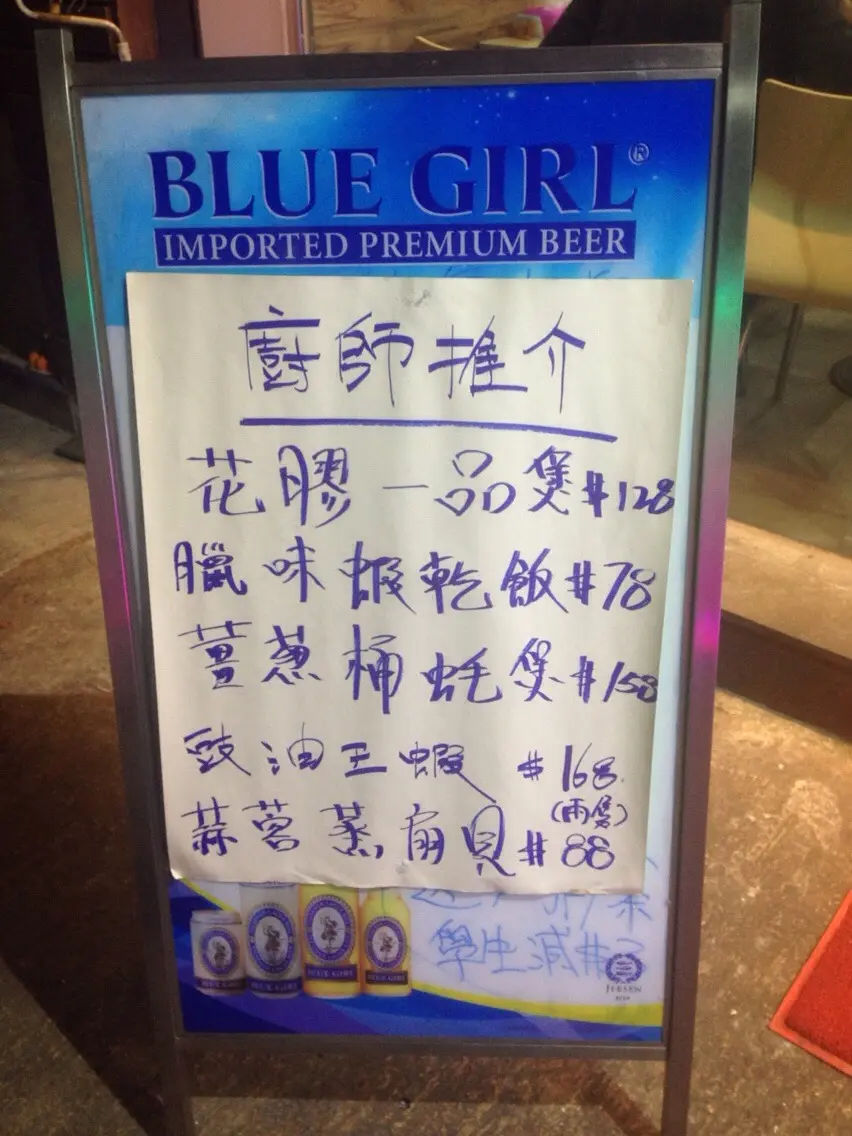 BLUE GIRL®
IMPORTED PREMIUM BEER
廚師推介
花膠一品煲 #128
臘味蝦乾飯 #78
薑蔥桶蚝煲 #158
豉油王蝦 #168
(兩隻)
蒜茸蒸扇貝 #88
學生減#
BLUE GIRL
BLUE GIRL
BLUE GIRL
BLUE GIRL
JEBSEN
BEER